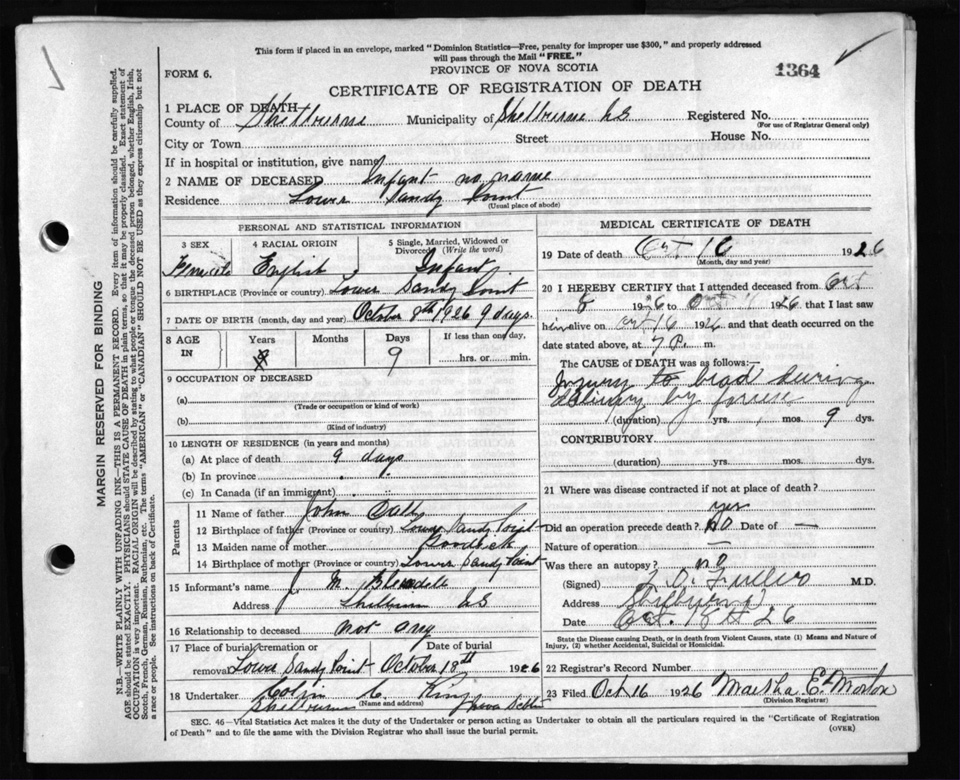 This form if placed in an envelope, marked "Dominion Statistics—Free, penalty for improper use $300," and properly addressed
will pass through the Mail "FREE."
PROVINCE OF NOVA SCOTIA
FORM 6.
1364
CERTIFICATE OF REGISTRATION OF DEATH
MARGIN RESERVED FOR BINDING
N.B.—WRITE PLAINLY WITH UNFADING INK—THIS IS A PERMANENT RECORD. Every item of information should be carefully supplied.
AGE should be stated EXACTLY. PHYSICIANS should STATE CAUSE OF DEATH in plain terms, so that it may be properly classified. Exact statement of
OCCUPATION is very important. RACIAL ORIGIN will be described by stating to what people or tongue the deceased person belonged, whether English, Irish,
Scotch, French, German, Russian, Ruthenian, etc. The terms "AMERICAN" or "CANADIAN" SHOULD NOT BE USED as they express citizenship but not
a race or people. See instructions on back of Certificate.
1 PLACE OF DEATH—
County of Shelburne Municipality of Shelburne NS Registered No.
(For use of Registrar General only)
City or Town Street House No.
If in hospital or institution, give name
2 NAME OF DECEASED Infant no name
Residence Lower Sandy Point
(Usual place of abode)
PERSONAL AND STATISTICAL INFORMATION
3 SEX 4 RACIAL ORIGIN 5 Single, Married, Widowed or
Divorced (Write the word)
Female English Infant
6 BIRTHPLACE (Province or country) Lower Sandy Point
7 DATE OF BIRTH (month, day and year) October 8th 1926 9 days.
8 AGE IN Years Months Days If less than one day,
9 hrs. or min.
9 OCCUPATION OF DECEASED
(a)
(Trade or occupation or kind of work)
(b)
(Kind of industry)
10 LENGTH OF RESIDENCE (in years and months)
(a) At place of death 9 days
(b) In province
(c) In Canada (if an immigrant)
Parents
11 Name of father John
12 Birthplace of father (Province or country) Lower Sandy Point
13 Maiden name of mother Goodick
14 Birthplace of mother (Province or country) Lower Sandy Point
15 Informant's name J M
Address Shelburne NS
16 Relationship to deceased not any
17 Place of burial, cremation or Date of burial
removal Lower Sandy Point October 18th 1926
18 Undertaker Colin C King
(Name and address)
Shelburne Nova Scotia
MEDICAL CERTIFICATE OF DEATH
19 Date of death Oct 16 1926
(Month, day and year)
20 I HEREBY CERTIFY that I attended deceased from Oct
8 1926 to Oct 1926, that I last saw
him alive on Oct 16 1926 and that death occurred on
date stated above, at 7 P. m.
The CAUSE of DEATH was as follows:—
Injury to head during
delivery by
(duration) yrs. mos. 9 dys.
CONTRIBUTORY
(duration) yrs. mos. dys.
21 Where was disease contracted if not at place of death?
yes
Did an operation precede death? no Date of —
Nature of operation —
Was there an autopsy? no
(Signed) M.D.
Address Shelburne
Date Oct. 18 26
State the Disease causing Death, or in death from Violent Causes, state (1) Means and Nature of
Injury, (2) whether Accidental, Suicidal or Homicidal.
22 Registrar's Record Number
23 Filed Oct 16 1926 Martha E. Morton
(Division Registrar)
SEC. 46—Vital Statistics Act makes it the duty of the Undertaker or person acting as Undertaker to obtain all the particulars required in the "Certificate of Registration
of Death" and to file the same with the Division Registrar who shall issue the burial permit.
(OVER)